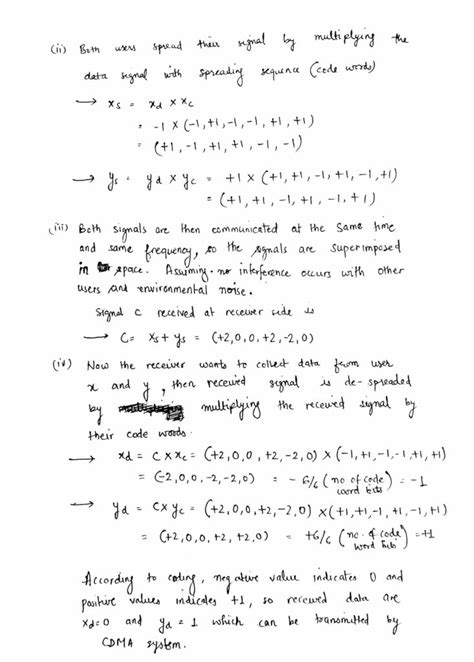 (ii) Both users spread their signal by multiplying the
data signal with spreading sequence (code words)
→ xs = xd × xc
= -1 × (-1, +1, -1, -1, +1, +1)
= (+1, -1, +1, +1, -1, -1)
→ ys = yd × yc = +1 × (+1, +1, -1, +1, -1, +1)
= (+1, +1, -1, +1, -1, +1)
(iii) Both signals are then communicated at the same time
and same frequency, so the signals are superimposed
in space. Assuming no interference occurs with other
users and environmental noise.
Signal C received at receiver side is
→ C = xs + ys = (+2, 0, 0, +2, -2, 0)
(iv) Now the receiver wants to collect data from user
x and y, then received signal is de-spreaded
by multiplying the received signal by
their code words.
→ xd = C × xc = (+2, 0, 0, +2, -2, 0) × (-1, +1, -1, -1, +1, +1)
= (-2, 0, 0, -2, -2, 0) = -6/6 (no of code word bits) = -1
→ yd = C × yc = (+2, 0, 0, +2, -2, 0) × (+1, +1, -1, +1, -1, +1)
= (+2, 0, 0, +2, +2, 0) = +6/6 (no. of code word bits) = +1
According to coding, negative value indicates 0 and
positive values indicates +1, so received data are
xd = 0 and yd = 1 which can be transmitted by
CDMA system.